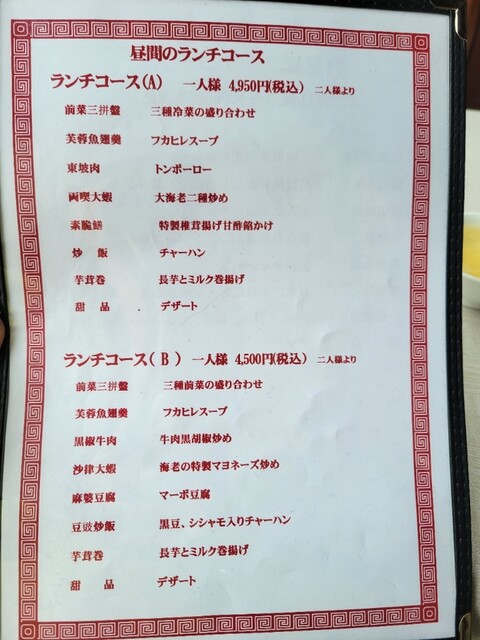 昼間のランチコース
ランチコース(A) 一人様 4,950円(税込) 二人様より
前菜三拼盤 三種冷菜の盛り合わせ
芙蓉魚翅羹 フカヒレスープ
東坡肉 トンポーロー
両喫大蝦 大海老二種炒め
素脆鱔 特製椎茸揚げ甘酢餡かけ
炒 飯 チャーハン
芋茸巻 長芋とミルク巻揚げ
甜 品 デザート
ランチコース( B ) 一人様 4,500円(税込) 二人様より
前菜三拼盤 三種前菜の盛り合わせ
芙蓉魚翅羹 フカヒレスープ
黒椒牛肉 牛肉黒胡椒炒め
沙律大蝦 海老の特製マヨネーズ炒め
麻婆豆腐 マーボ豆腐
豆豉炒飯 黒豆、シシャモ入りチャーハン
芋茸巻 長芋とミルク巻揚げ
甜 品 デザート